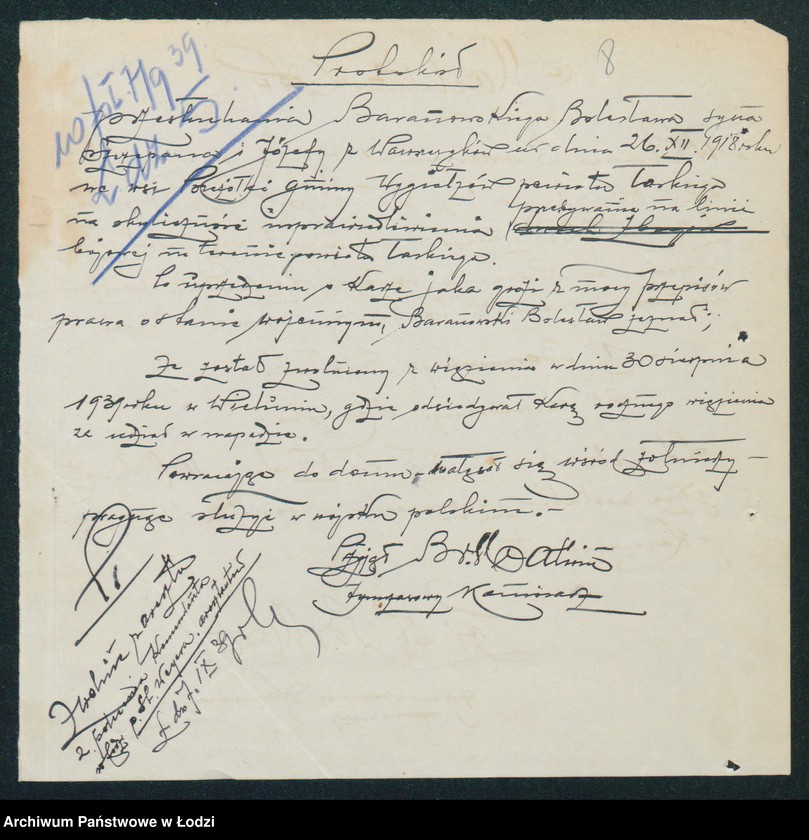 Protokół
8
przesłuchania Baranowskiego Bolesława syna
Szczepana i Józefy z Wawrzyków ur dnia 26.XII.1918 roku
we wsi gminy Wygiełzów powiatu łaskiego
na okoliczność usprawiedliwienia przebywania na linii
bojowej na terenie powiatu łaskiego.
Po uprzedzeniu o karze jaka grozi z mocy przepisów
prawa o stanie wojennym, Baranowski Bolesław zeznał;
Że został zwolniony z więzienia w dniu 30 sierpnia
1939 roku w Wieluniu, gdzie odsiadywał karę rocznego więzienia
za udział w napadzie.
Powracając do domu – znalazł się wśród żołnierzy –
pragnąc służyć w wojsku polskim. –
Przyjął
Tymczasowy
Zwolnić z aresztu
z polecenia Komendanta
w Łodzi P. St.
Ł. dn 7. IX 39
Archiwum Państwowe w Łodzi